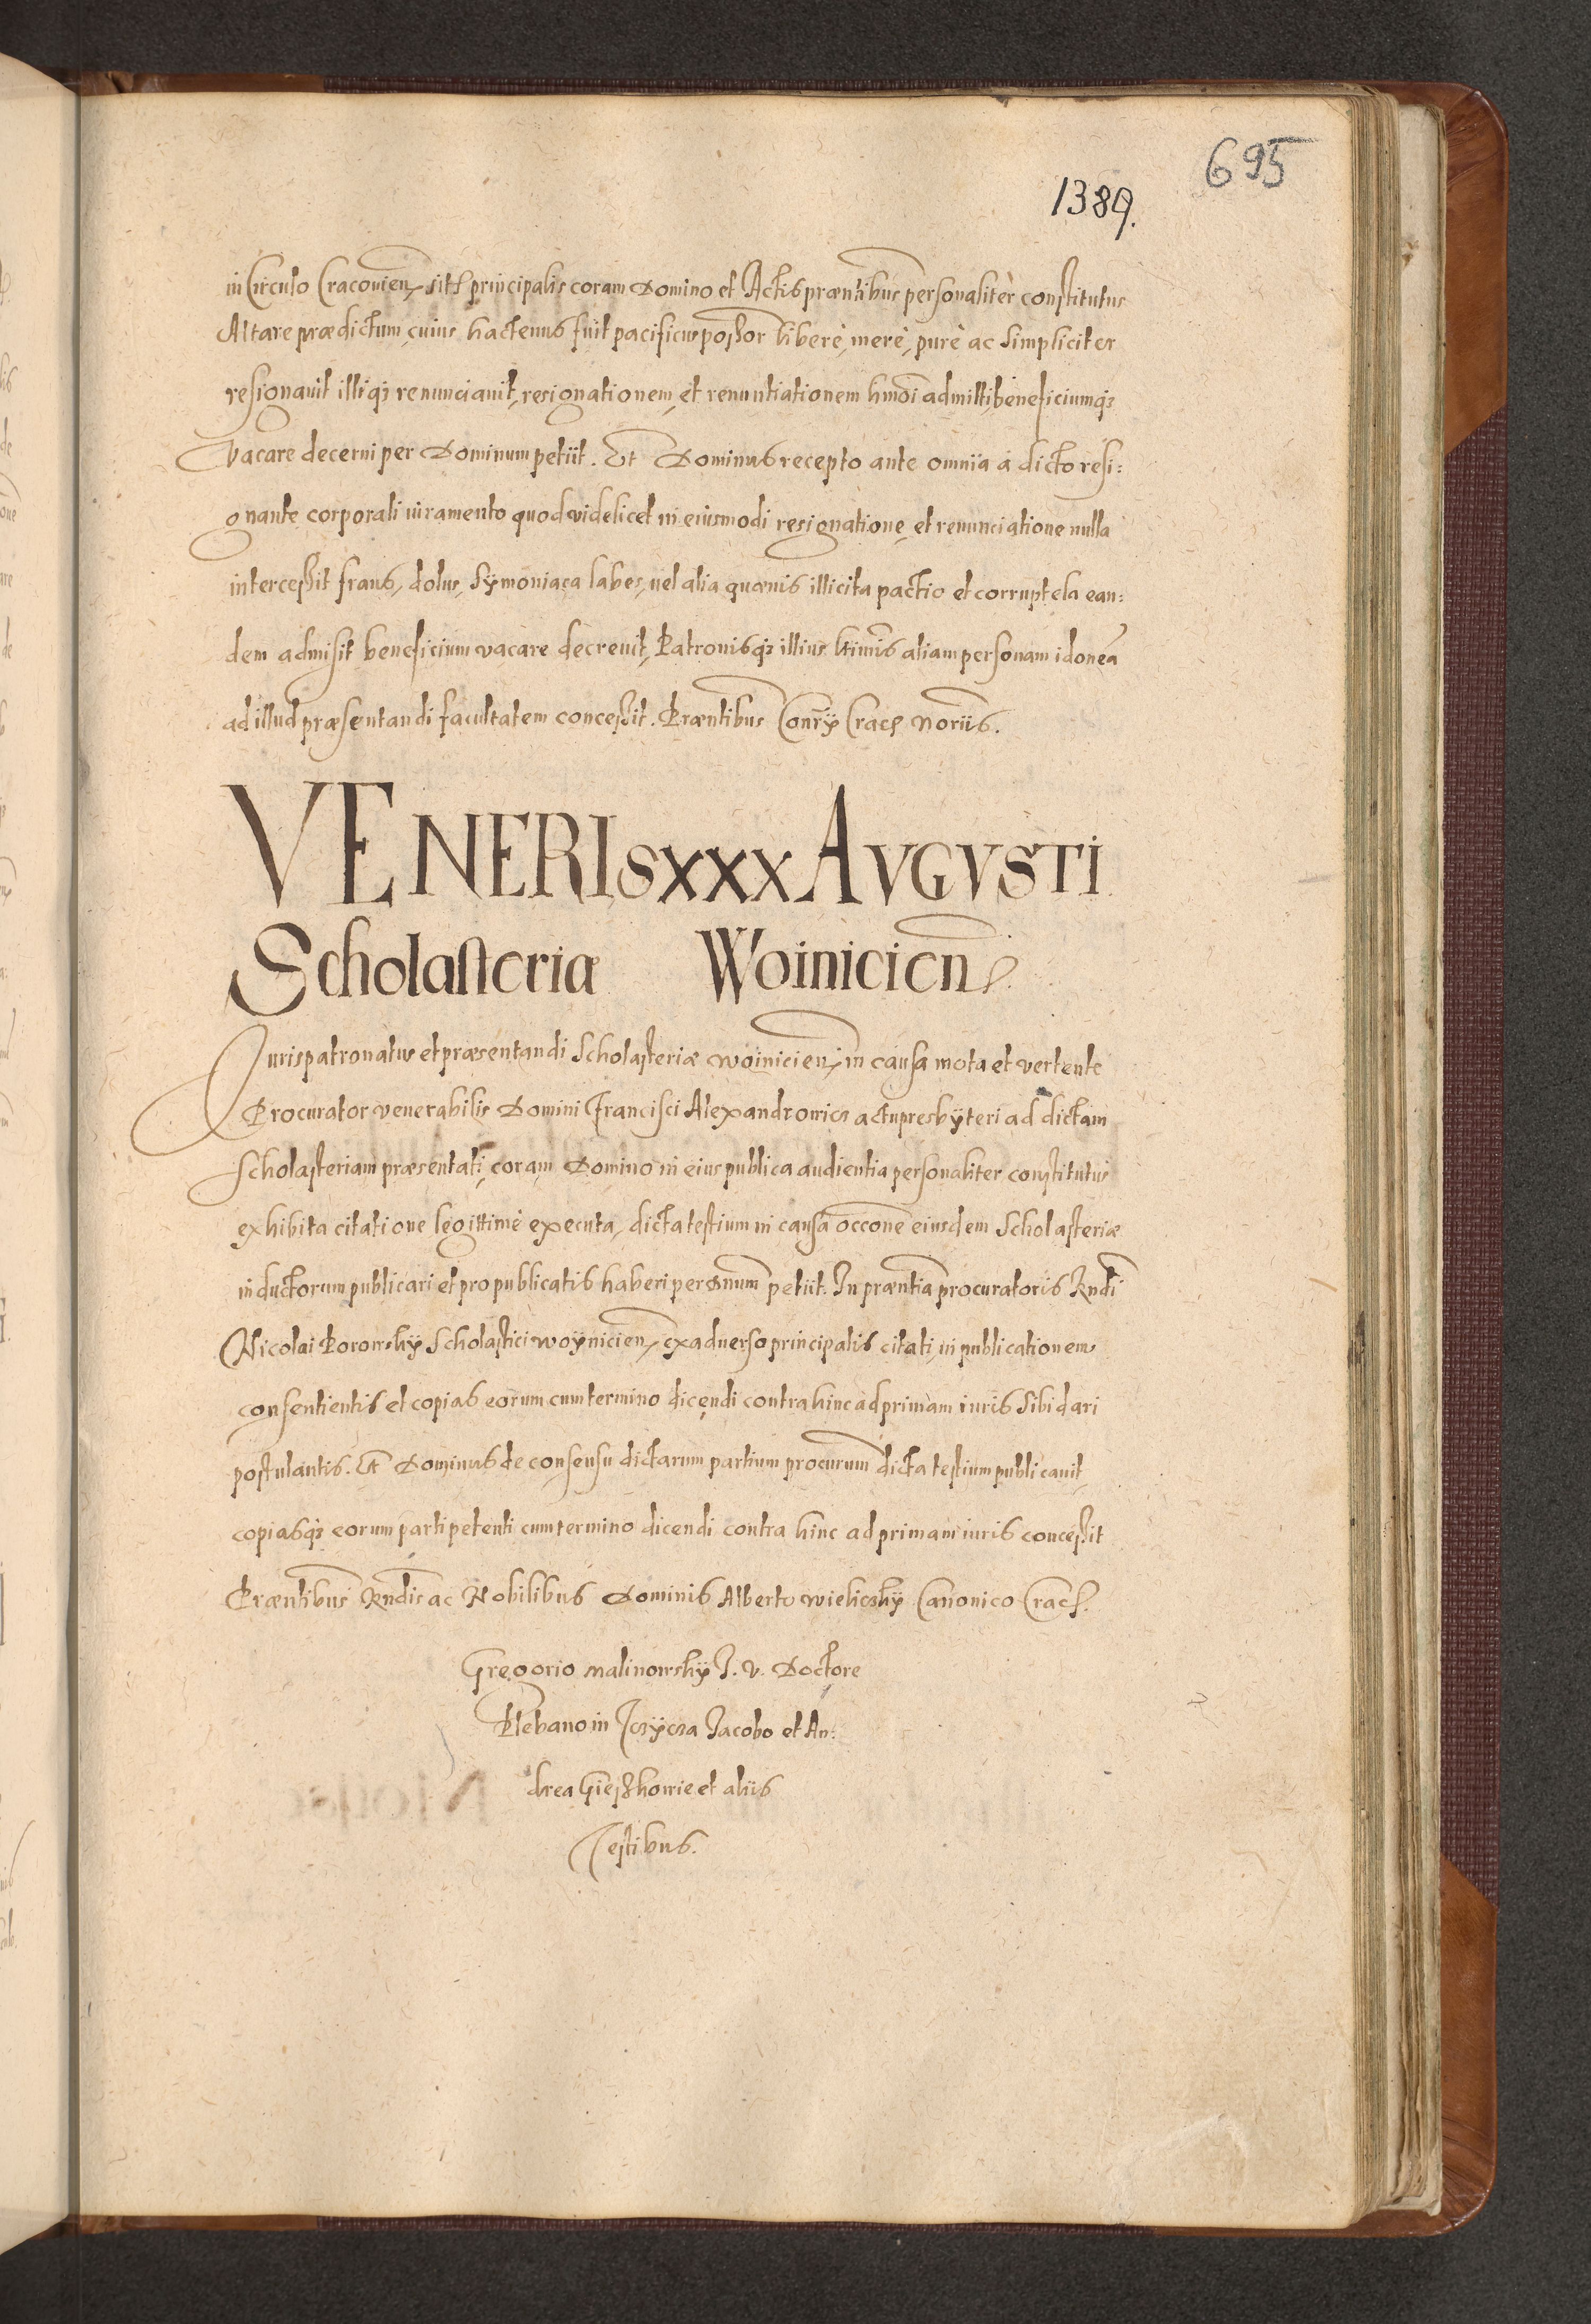 695
1389.
in Circulo Cracouien sitҍ principalis coram Domino et Actis præntibus personalitèr constitutus
Altare prædictum, cuius hactenus fuit pacificus possor liberè, merè, purè ac simpliciter
resignauit illiqȝ renunciauit, resignationem, et renuntiationem hmõi admitti, beneficiumqȝ
vacare decerni per Dominum petiit. Et Dominus recepto ante omnia à dicto resi:
gnante corporali iuramento quod videlicet in eiusmodi resignatione, et renunciatione nulla
intercessit fraus, dolus, Sÿmoniaca labes, uel alia quæuis illicita pactio et corruptela ean:
dem admisit beneficium vacare decreuit, Patronisqȝ illius ltimis aliam personam idoneã
ad illud præsentandi facultatem concessit. Præntibus Conrÿ Crac Noriis.
VENERIS XXX AVGVSTI
Scholasteria Woinicien
Iuris patronatus et præsentandi Scholasteriæ woinicien in causa mota et vertente
Procurator venerabilis Domini Francisci Alexandrowicz actu presbÿteri ad dictam
Scholasteriam præsentati, coram Domino in eius publica audientia personaliter constitutus
exhibita citatione legittimè executa, dicta testium in causa occone eiusdem Scholasteriæ
inductorum publicari et pro publicatis haberi per Dnum petiit. In præntia procuratoris Rndi
Nicolai Porowskÿ Scholastici woÿnicien, ex aduerso principalis citati, in publicationem
consentientis et copias eorum cum termino dicendi contra hinc ad primam iuris Sibi dari
postulantis. Et Dominus de consensu dictarum partium procurum dicta testium publicauit,
copiasqȝ eorum parti petenti cum termino dicendi contra hinc ad primam iuris concessit
Præntibus Rndis ac Nobilibus Dominis Alberto wieliczkÿ Canonico Crac.
Gregorio Malinowskÿ I. V. Doctore
Plebano in Tczÿcza Jacobo et An:
drea Gieszkowie et aliis
Testibus.